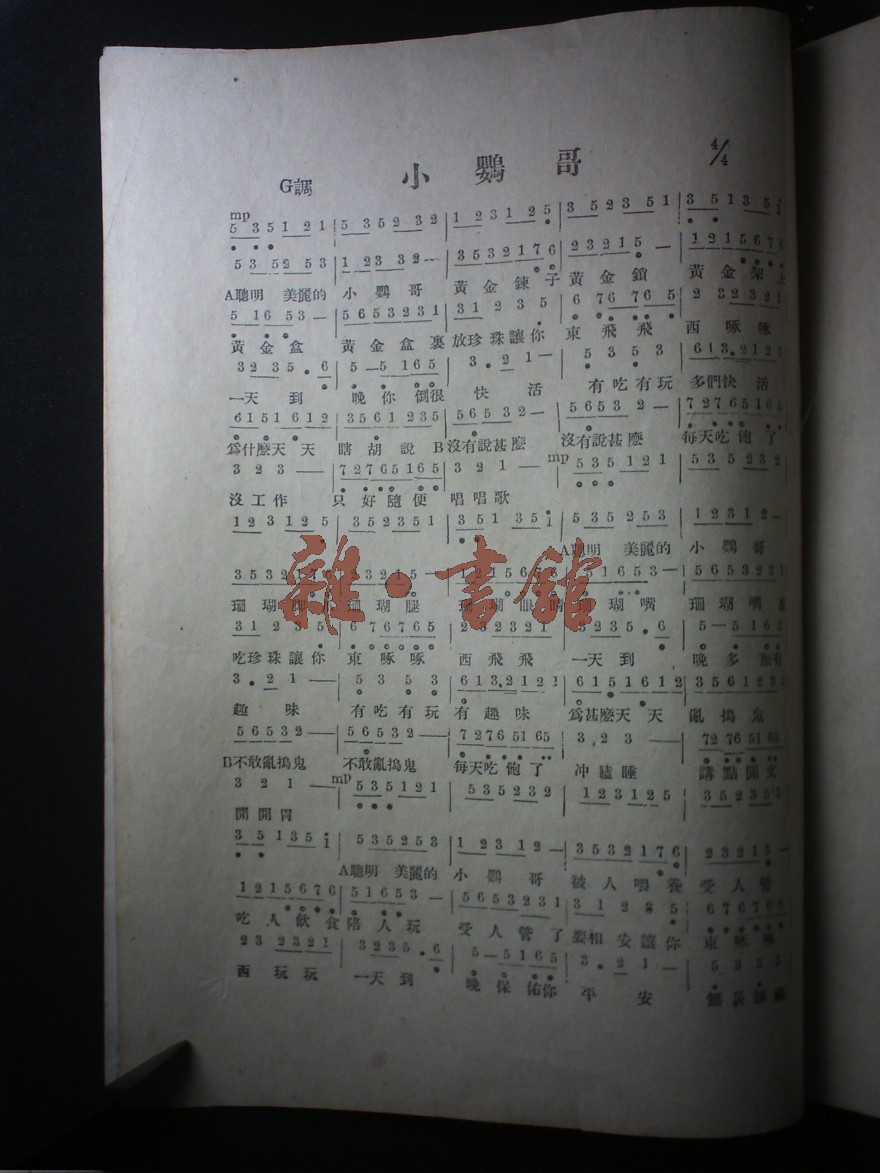 小鸚哥
G調 4/4
mp
5 3 5 1 2 1 | 5 3 5 2 3 2 | 1 2 3 1 2 5 | 3 5 2 3 5 1 | 3 5 1 3 5 i
5 3 5 2 5 3 | 1 2 3 3 2 — | 3 5 3 2 1 7 6 | 2 3 2 1 5 — | 1 2 1 5 6 7 6
A聰明 美麗的 小鸚哥 黃金鍊子 黃金鎖 黃金架上
5 1 6 5 3 — | 5 6 5 3 2 3 1 | 3 1 2 3 5 | 6 7 6 7 6 5 | 2 3 2 3 2 1
黃金盒 黃金盒裏 放珍珠讓你 東飛飛 西啄啄
3 2 3 5 . 6 | 5 — 5 1 6 5 | 3 . 2 1 — | 5 3 5 3 | 6 1 3 . 2 1 2 1
一天到 晚你倒很 快活 有吃有玩 多們快活
6 1 5 1 6 1 2 | 3 5 6 1 2 3 5 | 5 6 5 3 2 — | 5 6 5 3 2 — | 7 2 7 6 5 1 6 5
爲什麽天天 瞎胡說 B沒有說甚麽 沒有說甚麽 每天吃飽了
3 2 3 — | 7 2 7 6 5 1 6 5 | 3 2 1 — | mp 5 3 5 1 2 1 | 5 3 5 2 3 2
沒工作 只好隨便 唱唱歌
1 2 3 1 2 5 | 3 5 2 3 5 1 | 3 5 1 3 5 i | 5 3 5 2 5 3 | 1 2 3 1 2 —
A聰明 美麗的 小鸚哥
3 5 3 2 1 7 6 | 2 3 2 1 5 — | 1 2 1 5 6 5 | 5 1 6 5 3 — | 5 6 5 3 2 3 1
珊瑚 珊瑚腿 珊瑚眼睛 珊瑚嘴 珊瑚嘴
3 1 2 3 5 | 6 7 6 7 6 5 | 2 3 2 3 2 1 | 3 2 3 5 . 6 | 5 — 5 1 6 5
吃珍珠讓你 東啄啄 西飛飛 一天到 晚多 有
3 . 2 1 — | 5 3 5 3 | 6 1 3 . 2 1 2 1 | 6 1 5 1 6 1 2 | 3 5 6 1 2 3
趣味 有吃有玩 有趣味 爲甚麽天天 亂搗鬼
5 6 5 3 2 — | 5 6 5 3 2 — | 7 2 7 6 5 1 6 5 | 3 2 3 — | 7 2 7 6 5 1 6 5
B不敢亂搗鬼 不敢亂搗鬼 每天吃飽了 冲瞌睡 講點閒文
3 2 1 — | mp 5 3 5 1 2 1 | 5 3 5 2 3 2 | 1 2 3 1 2 5 | 3 5 2 3 5 1
開開胃
3 5 1 3 5 i | 5 3 5 2 5 3 | 1 2 3 1 2 — | 3 5 3 2 1 7 6 | 2 3 2 1 5 —
A聰明 美麗的 小鸚哥 被人喂養 受人管
1 2 1 5 6 7 6 | 5 1 6 5 3 — | 5 6 5 3 2 3 1 | 3 1 2 3 5 | 6 7 6 7 6 5
吃人飲食 陪人玩 受人管了 要相安讓你 東啄啄
2 3 2 3 2 1 | 3 2 3 5 . 6 | 5 — 5 1 6 5 | 3 . 2 1 — | 5 3 5
西玩玩 一天到 晚保佑你 平安 無災
雜·書館